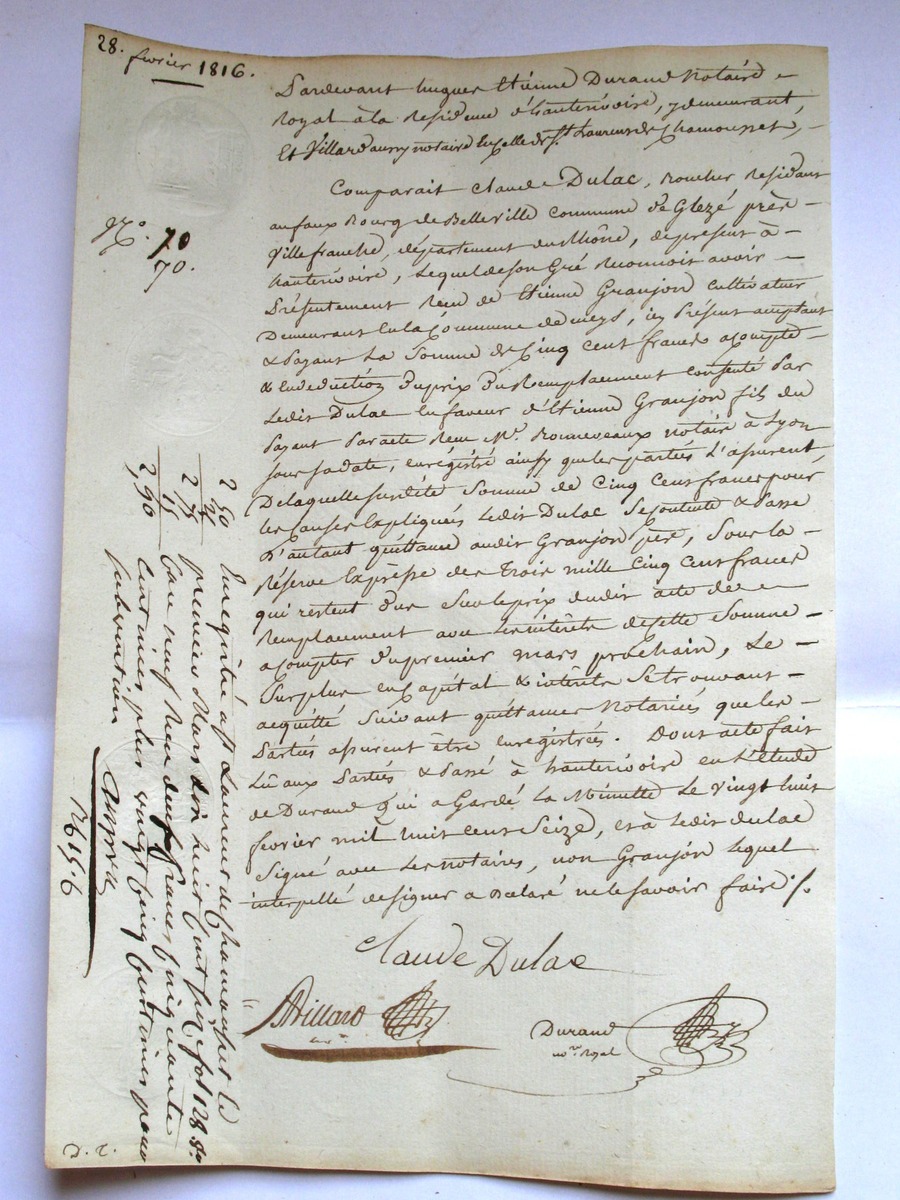 28.
février 1816.
Pardevant hugues Etiénne Durand Notaire
Royal à la Residence d'hauterivoire, y demeurant,
Et Villard aussy notaire En Celle de St. Laurens de Chamousset,
Comparait Claude Dulac, Residant
au faux Bourg de Belleville Commune de Glezé près
Villefranche, département du Rhône, de présent à
hauterivoire, Lequel de son Gré Reconnoit avoir
Présentement Reçu de Etiénne Granjon Cultivateur
Demeurant En la Commune de meys, icy Présent acceptant
& Payant La Somme de Cinq Cent francs acompte
& En déduction du prix du Remplacement Consenté Par
Ledit Dulac En faveur d'Etienne Granjon fils du
Payant Par acte Reçu Me. notaire à Lyon
Sous Sa date, enrégistré ainsy que les parties L'assurent,
De laquelle susdite Somme de Cinq Cent francs pour
les Causes Expliquées Ledit Dulac Se Contente & Passe
D'autant quittance audit Granjon père, Sous la
Réserve Expresse des Trois mille Cinq Cent francs
qui restent dus Sur le prix dudit acte de
Remplacement avec Les intérêts de cette Somme
a Compter du premier mars prochain, Le
Surplus en Capital & intérêts Se trouvant
acquitté Suivant quittances Notariées que les
Parties assurent être Enregistrées. Dont acte fait
Lû aux Parties & Passé à hauterivoire en L'étude
de Durand Qui a Gardé La Minutte Le Vingt huit
février mil huit Cent Seize, et à Ledit Dulac
Signé avec Les notaires, non Granjon Lequel
interpellé de signer a Déclaré ne le Savoir faire ./.
Claude Dulac
Villard
Durand
nore. Royal
No. 70
70.
2 50
25
2 75
15
2,90
Enregistré à St Laurent de Chamousset le
premier Mars dix huit Cent seize fol 128
Case neuf Reçu deux francs Cinquante
Centimes plus vingt Cinq Centimes pour
subvention